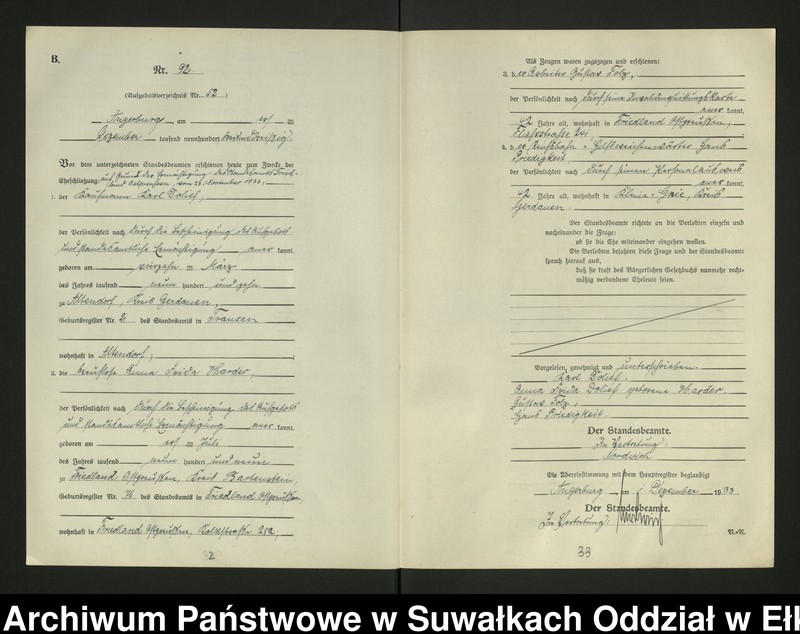 B.
Nr. 92
(Aufgebotsverzeichnis Nr. 52)
Angerburg, am
Dezember tausend neunhundert dreiunddreißig.
Vor dem unterzeichneten Standesbeamten erschienen heute zum Zwecke der
Eheschließung: auf Grund der Ermächtigung des Standesamts Fried-
land Ostpreussen vom November 1933.
1. der Kaufmann Karl
der Persönlichkeit nach durch die Bescheinigung des Aufgebots
und standesamtliche Ermächtigung anerkannt,
geboren am vierzehn ten März
des Jahres tausend neun hundert und zehn
zu Altendorf, Kreis Gerdauen,
Geburtsregister Nr. des Standesamts in
wohnhaft in Altendorf;
2. die berufslose Anna Frida Harder,
der Persönlichkeit nach durch die Bescheinigung des Aufgebots
und standesamtliche Ermächtigung anerkannt,
geboren am ersten Juli
des Jahres tausend neun hundert und neun
zu Friedland Ostpreußen, Kreis Bartenstein,
Geburtsregister Nr. 76 des Standesamts in Friedland Ostpreußen,
wohnhaft in Friedland Ostpreußen,
32
Als Zeugen waren zugezogen und erschienen:
3. der Arbeiter Gustav Folz,
der Persönlichkeit nach durch seine Invalidenquittungskarte
anerkannt,
42 Jahre alt, wohnhaft in Friedland Ostpreußen,
4. der
Friedigkeit,
der Persönlichkeit nach durch seinen Personalausweis
anerkannt,
42 Jahre alt, wohnhaft in Klein-Gnie, Kreis
Gerdauen.
Der Standesbeamte richtete an die Verlobten einzeln und
nacheinander die Frage:
ob sie die Ehe miteinander eingehen wollen.
Die Verlobten bejahten diese Frage und der Standesbeamte
sprach hierauf aus,
daß sie kraft des Bürgerlichen Gesetzbuchs nunmehr recht-
mäßig verbundene Eheleute seien.
Vorgelesen, genehmigt und unterschrieben.
Karl
Anna Frida geborene Harder.
Gustav Folz,
Friedigkeit
Der Standesbeamte.
In Vertretung:
Die Übereinstimmung mit dem Hauptregister beglaubigt
Angerburg, am Dezember 1933.
Der Standesbeamte.
In Vertretung:
N.-N.
33
Archiwum Państwowe w Suwałkach Oddział w Ełk